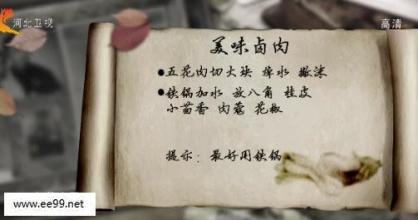 河北卫视
高清
美味卤肉
●五花肉切大块 焯水 撇沫
●铁锅加水 放八角 桂皮
小茴香 肉蔻 花椒
提示：最好用铁锅
www.ee99.net